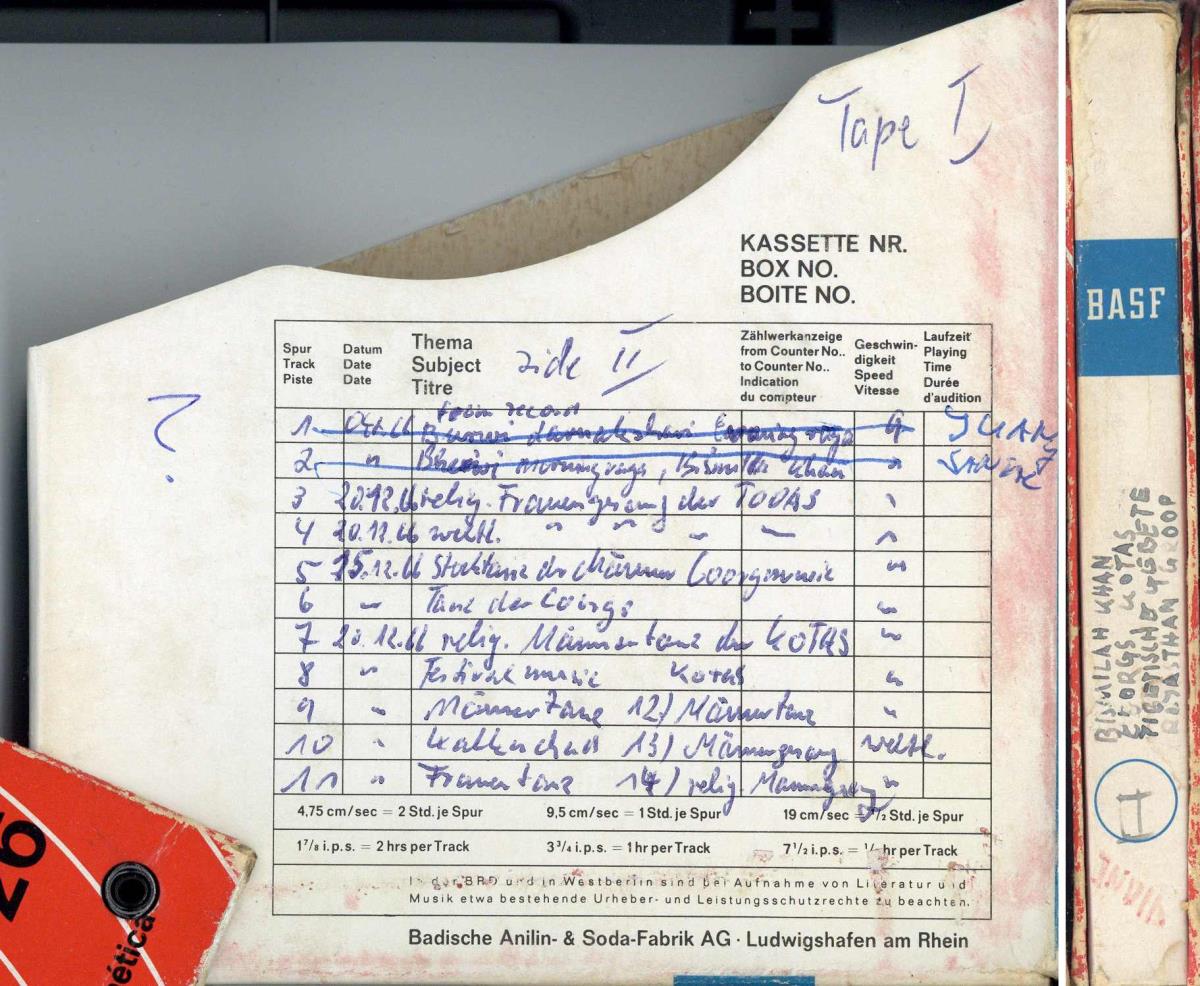 Tape I
KASSETTE NR.
BOX NO.
BOITE NO.
Spur
Track
Piste
Datum
Date
Date
Thema
Subject
Titre
side II
Zählwerkanzeige
from Counter No..
to Counter No..
Indication
du compteur
Geschwin-
digkeit
Speed
Vitesse
Laufzeit
Playing
Time
Durée
d'audition
from record
1 Evening raga
2 " morning raga, Bismilla Khan
3 20.12.66 relig. Frauengesang der TODAS "
4 20.12.66 weltl. " " " — "
5 15.12.66 Stocktanz der Männer "
6 " Tanz der Coorgs "
7 20.12.66 relig. Männertanz der KOTAS "
8 " Festivalmusic Kotas "
9 " Männertanz 12) Männertanz "
10 " 13) Männergesang weltl.
11 " Frauentanz 14) relig. "
4,75 cm/sec = 2 Std. je Spur 9,5 cm/sec = 1 Std. je Spur 19 cm/sec = 1/2 Std. je Spur
1 7/8 i.p.s. = 2 hrs per Track 3 3/4 i.p.s. = 1 hr per Track 7 1/2 i.p.s. = 1/2 hr per Track
In der BRD und in Westberlin sind bei Aufnahme von Literatur und
Musik etwa bestehende Urheber- und Leistungsschutzrechte zu beachten.
Badische Anilin- & Soda-Fabrik AG · Ludwigshafen am Rhein
?
26
ética
BASF
BISMILAH KHAN
KOTAS
TIBETISCHE GEBETE
RAJASTHAN GROOP
II